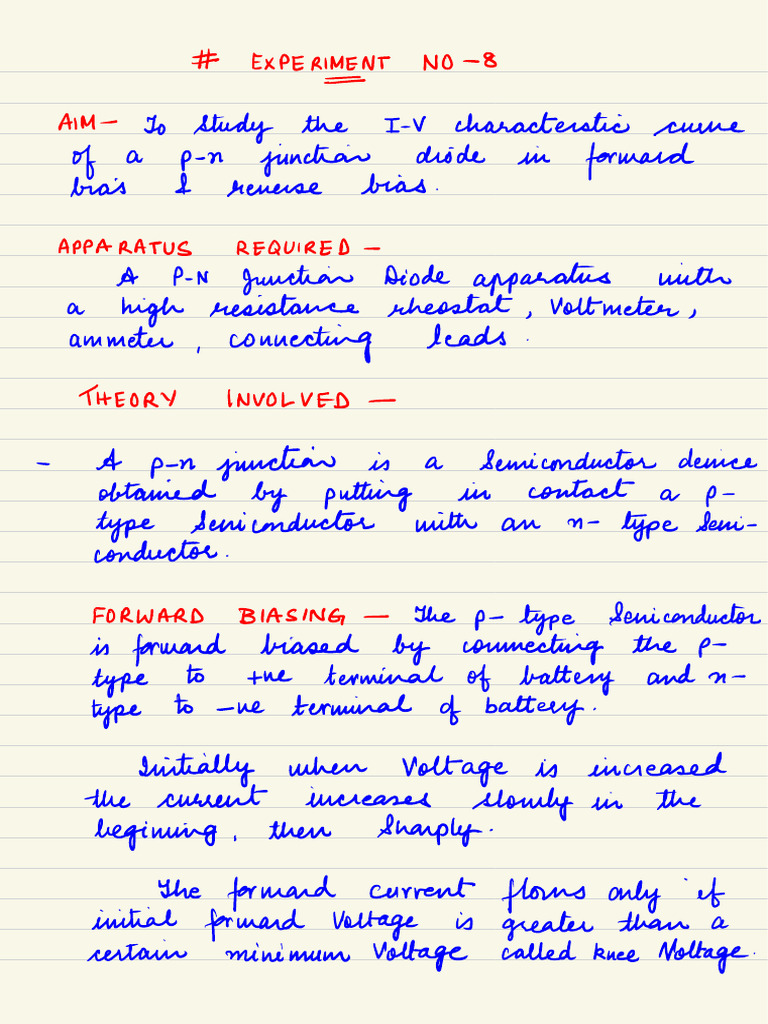 # EXPERIMENT NO-8
AIM- To study the I-V characterstic curve
of a p-n junction diode in forward
bias & reverse bias.
APPARATUS REQUIRED -
A P-N Junction Diode apparatus with
a high resistance rheostat, Voltmeter,
ammeter, connecting leads.
THEORY INVOLVED -
- A p-n junction is a Semiconductor device
obtained by putting in contact a p-
type Semiconductor with an n- type Semi-
conductor.
FORWARD BIASING - The p- type Semiconductor
is forward biased by connecting the p-
type to +ve terminal of battery and n-
type to -ve terminal of battery.
Initially when Voltage is increased
the current increases slowly in the
beginning, then Sharply.
The forward current flows only if
initial forward Voltage is greater than a
certain minimum Voltage called knee Voltage.